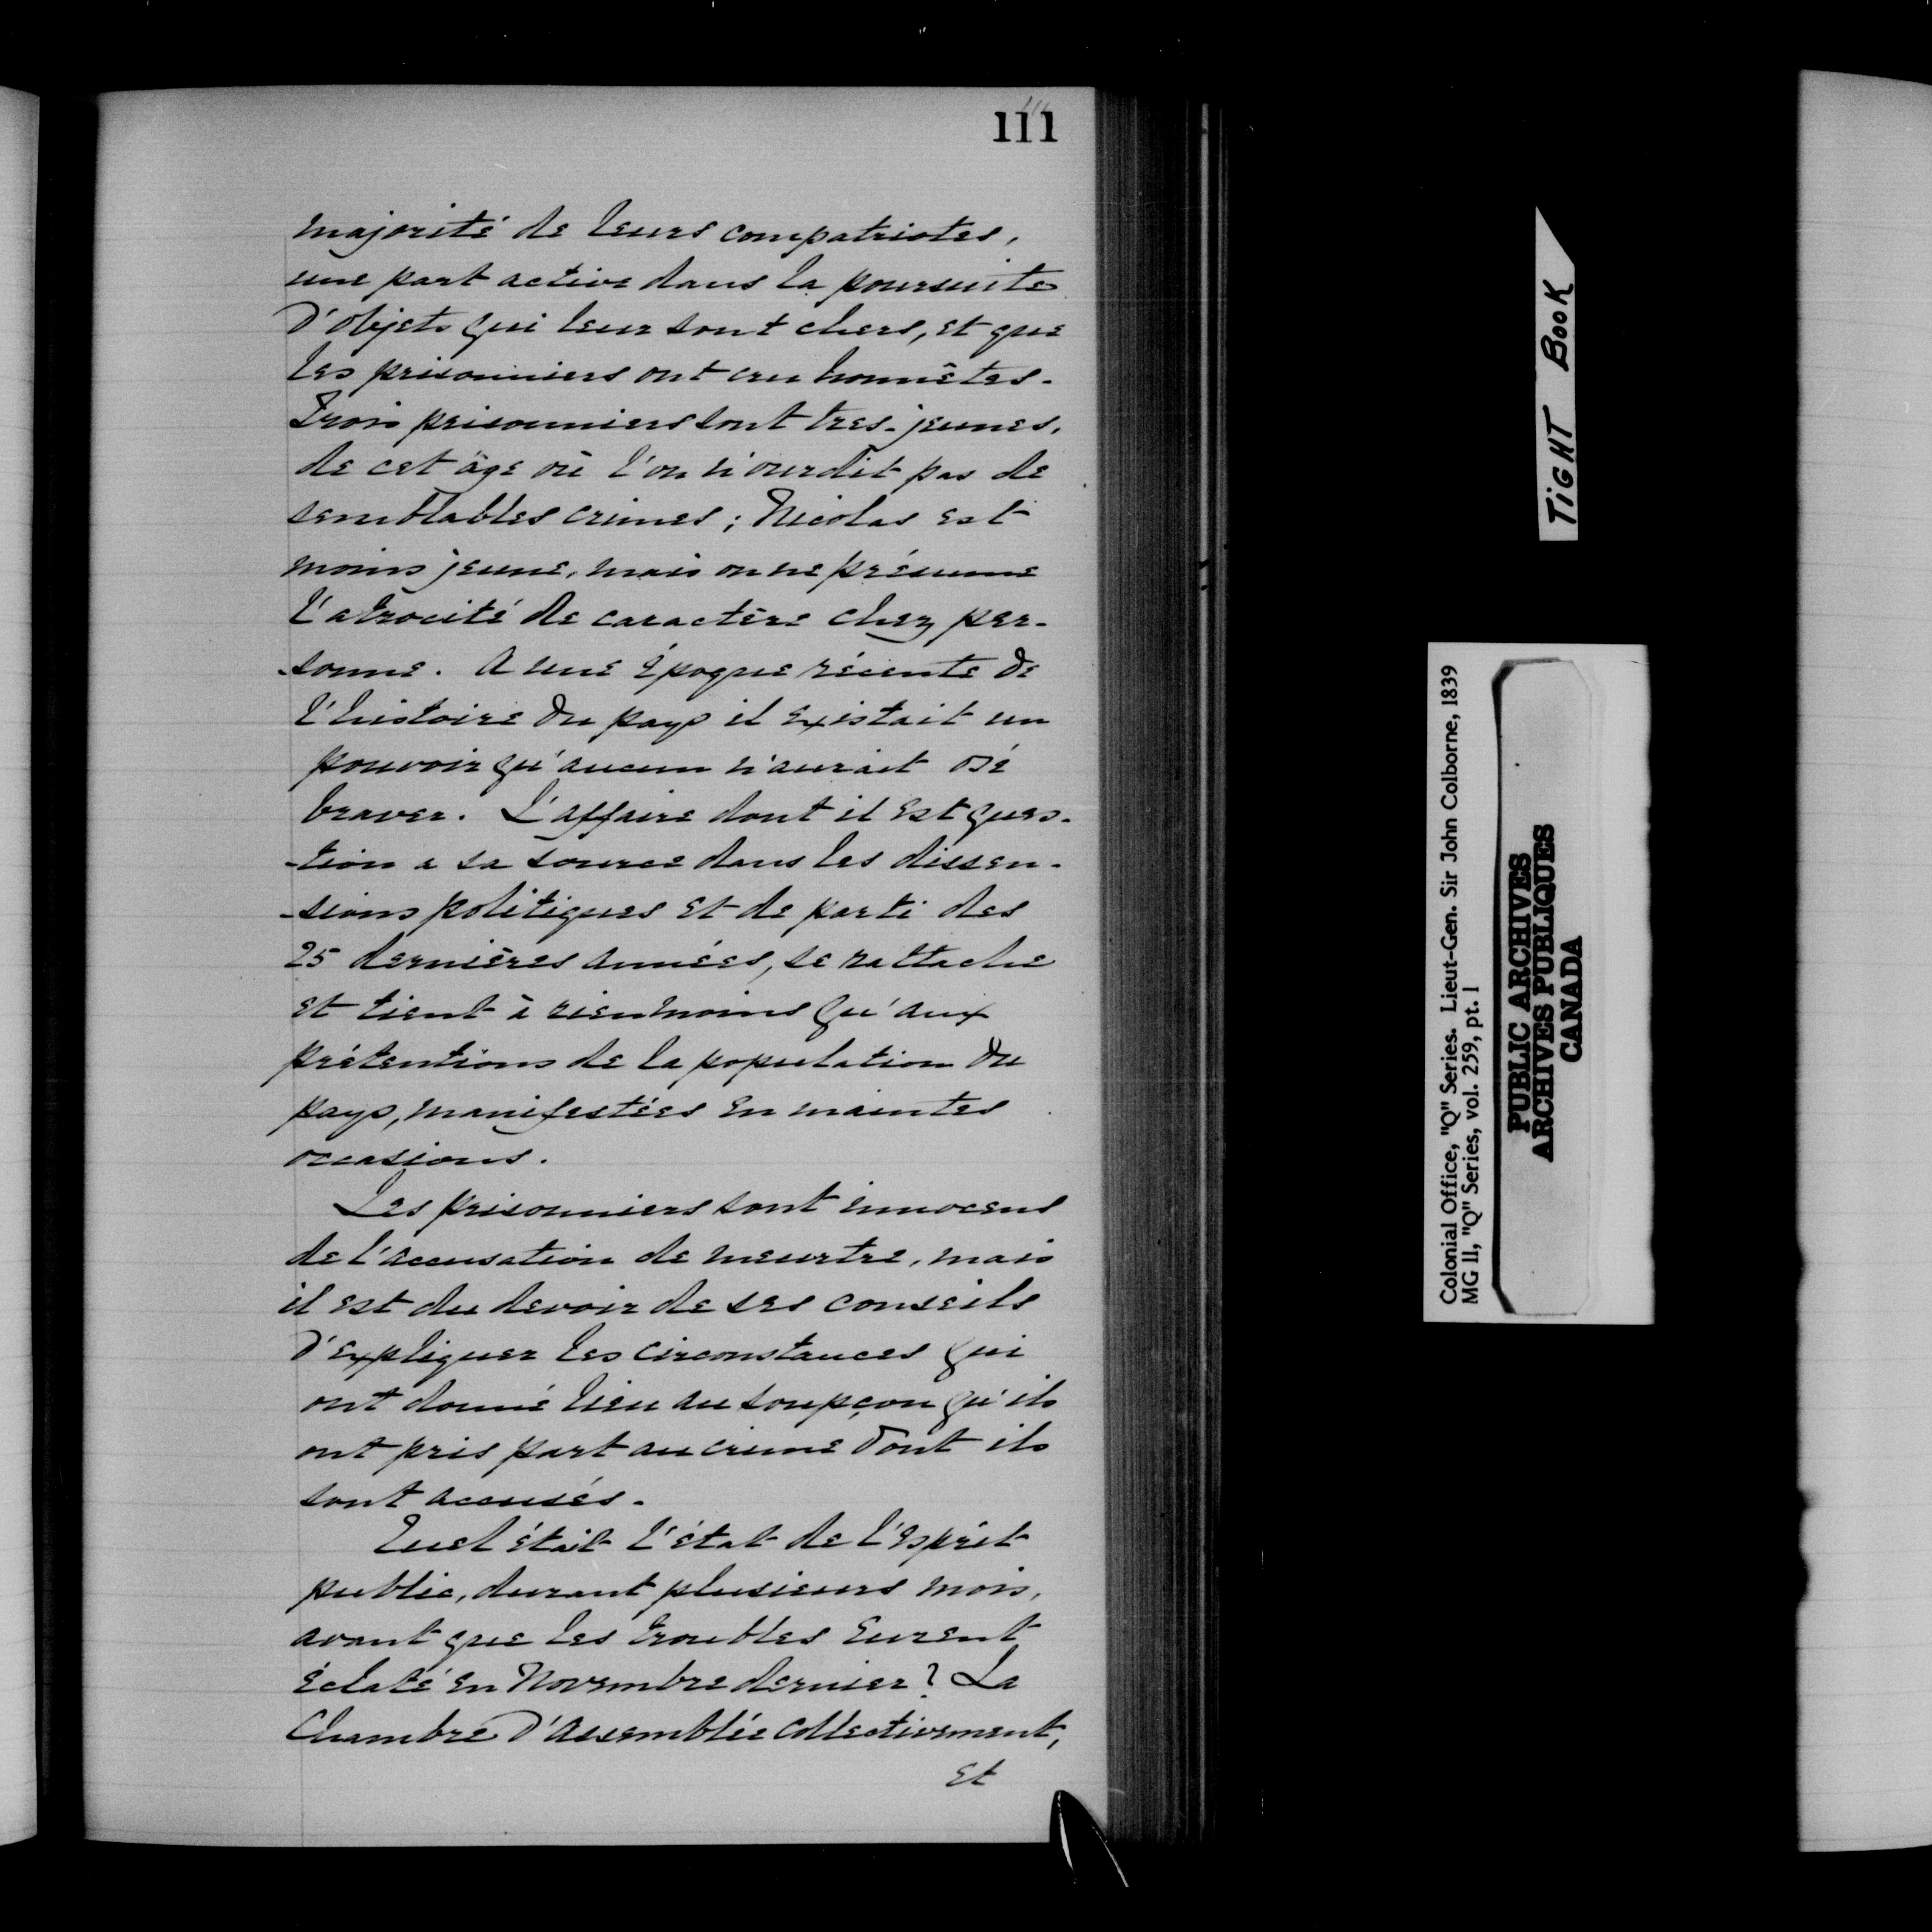 111
majorité de leurs compatriotes,
une part active dans la poursuite
d'objets qui leur sont chers, et que
les prisonniers ont cru honnêtes.
Trois prisonniers sont tres-jeunes,
de cet âge où l'on n'ourdit pas de
semblables crimes; Nicolas est
moins jeune, mais on ne présume
l'atrocité de caractère chez per-
-sonne. A une époque récente de
l'histoire du pays il existait un
pouvoir qu'aucun n'aurait osé
braver. L'affaire dont il est ques-
-tion a sa source dans les dissen-
-sions politiques et de parti des
25 dernières années, se rattache
et tient à rien moins qu'aux
prétentions de la population du
pays, manifestées en maintes
occasions.
Les prisonniers sont innocens
de l'accusation de meurtre, mais
il est du devoir de ses conseils
d'expliquer les circonstances qui
ont donné lieu au soupçon qu'ils
ont pris part au crime dont ils
sont accusés.
Quel était l'état de l'esprit
public, durant plusieurs mois,
avant que les troubles eurent
éclaté en Novembre dernier? La
Chambre d'Assemblée collectivement,
et
TIGHT BOOK
Colonial Office, "Q" Series. Lieut-Gen. Sir John Colborne, 1839
MG 11, "Q" Series, vol. 259, pt. 1
PUBLIC ARCHIVES
ARCHIVES PUBLIQUES
CANADA